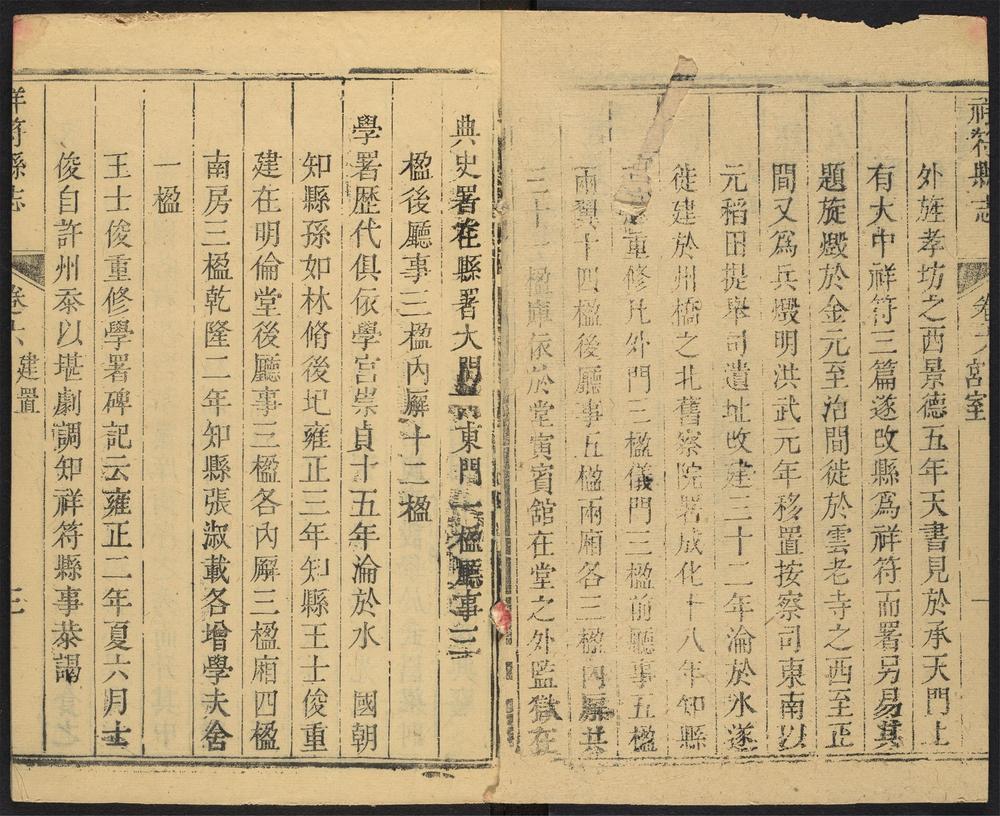 祥符縣志 卷六宮室 一
外旌孝坊之西景德五年天書見於承天門上
有大中祥符三篇遂改縣爲祥符而署另易其
題旋燬於金元至治間徙於雲老寺之西至正
間又爲兵燬明洪武元年移置按察司東南以
元稻田提舉司遺址改建三十二年淪於水遂
徙建於州橋之北舊察院署成化十八年知縣
重修凡外門三楹儀門三楹前廳事五楹
兩翼十四楹後廳事五楹兩廂各三楹內廨共
三十一楹庫依於堂寅賓館在堂之外監獄在
典史署在縣署大門東門一楹廳事三
楹後廳事三楹內廨十二楹
學署歷代俱依學宮崇貞十五年淪於水 國朝
知縣孫如林脩後圮雍正三年知縣王士俊重
建在明倫堂後廳事三楹各內廨三楹廂四楹
南房三楹乾隆二年知縣張淑載各增學夫舍
一楹
王士俊重修學署碑記云雍正二年夏六月士
俊自許州忝以堪劇調知祥符縣事恭謁
祥符縣志 卷六 建置 二